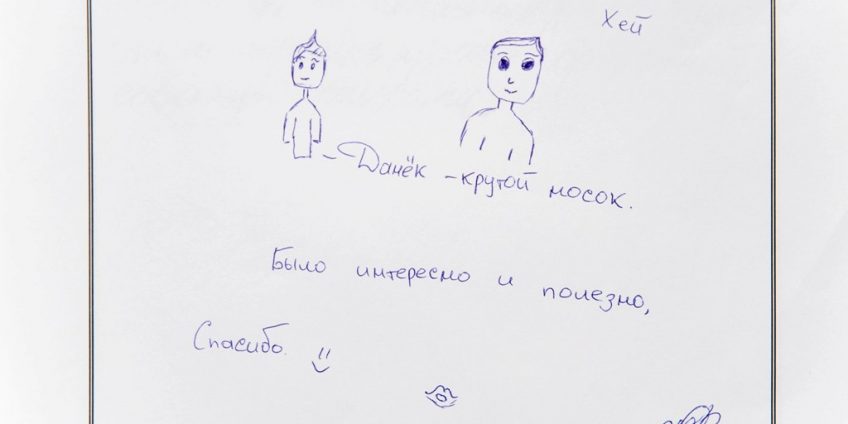 Хей
- Данёк - крутой носок.
Было интересно и полезно,
Спасибо.